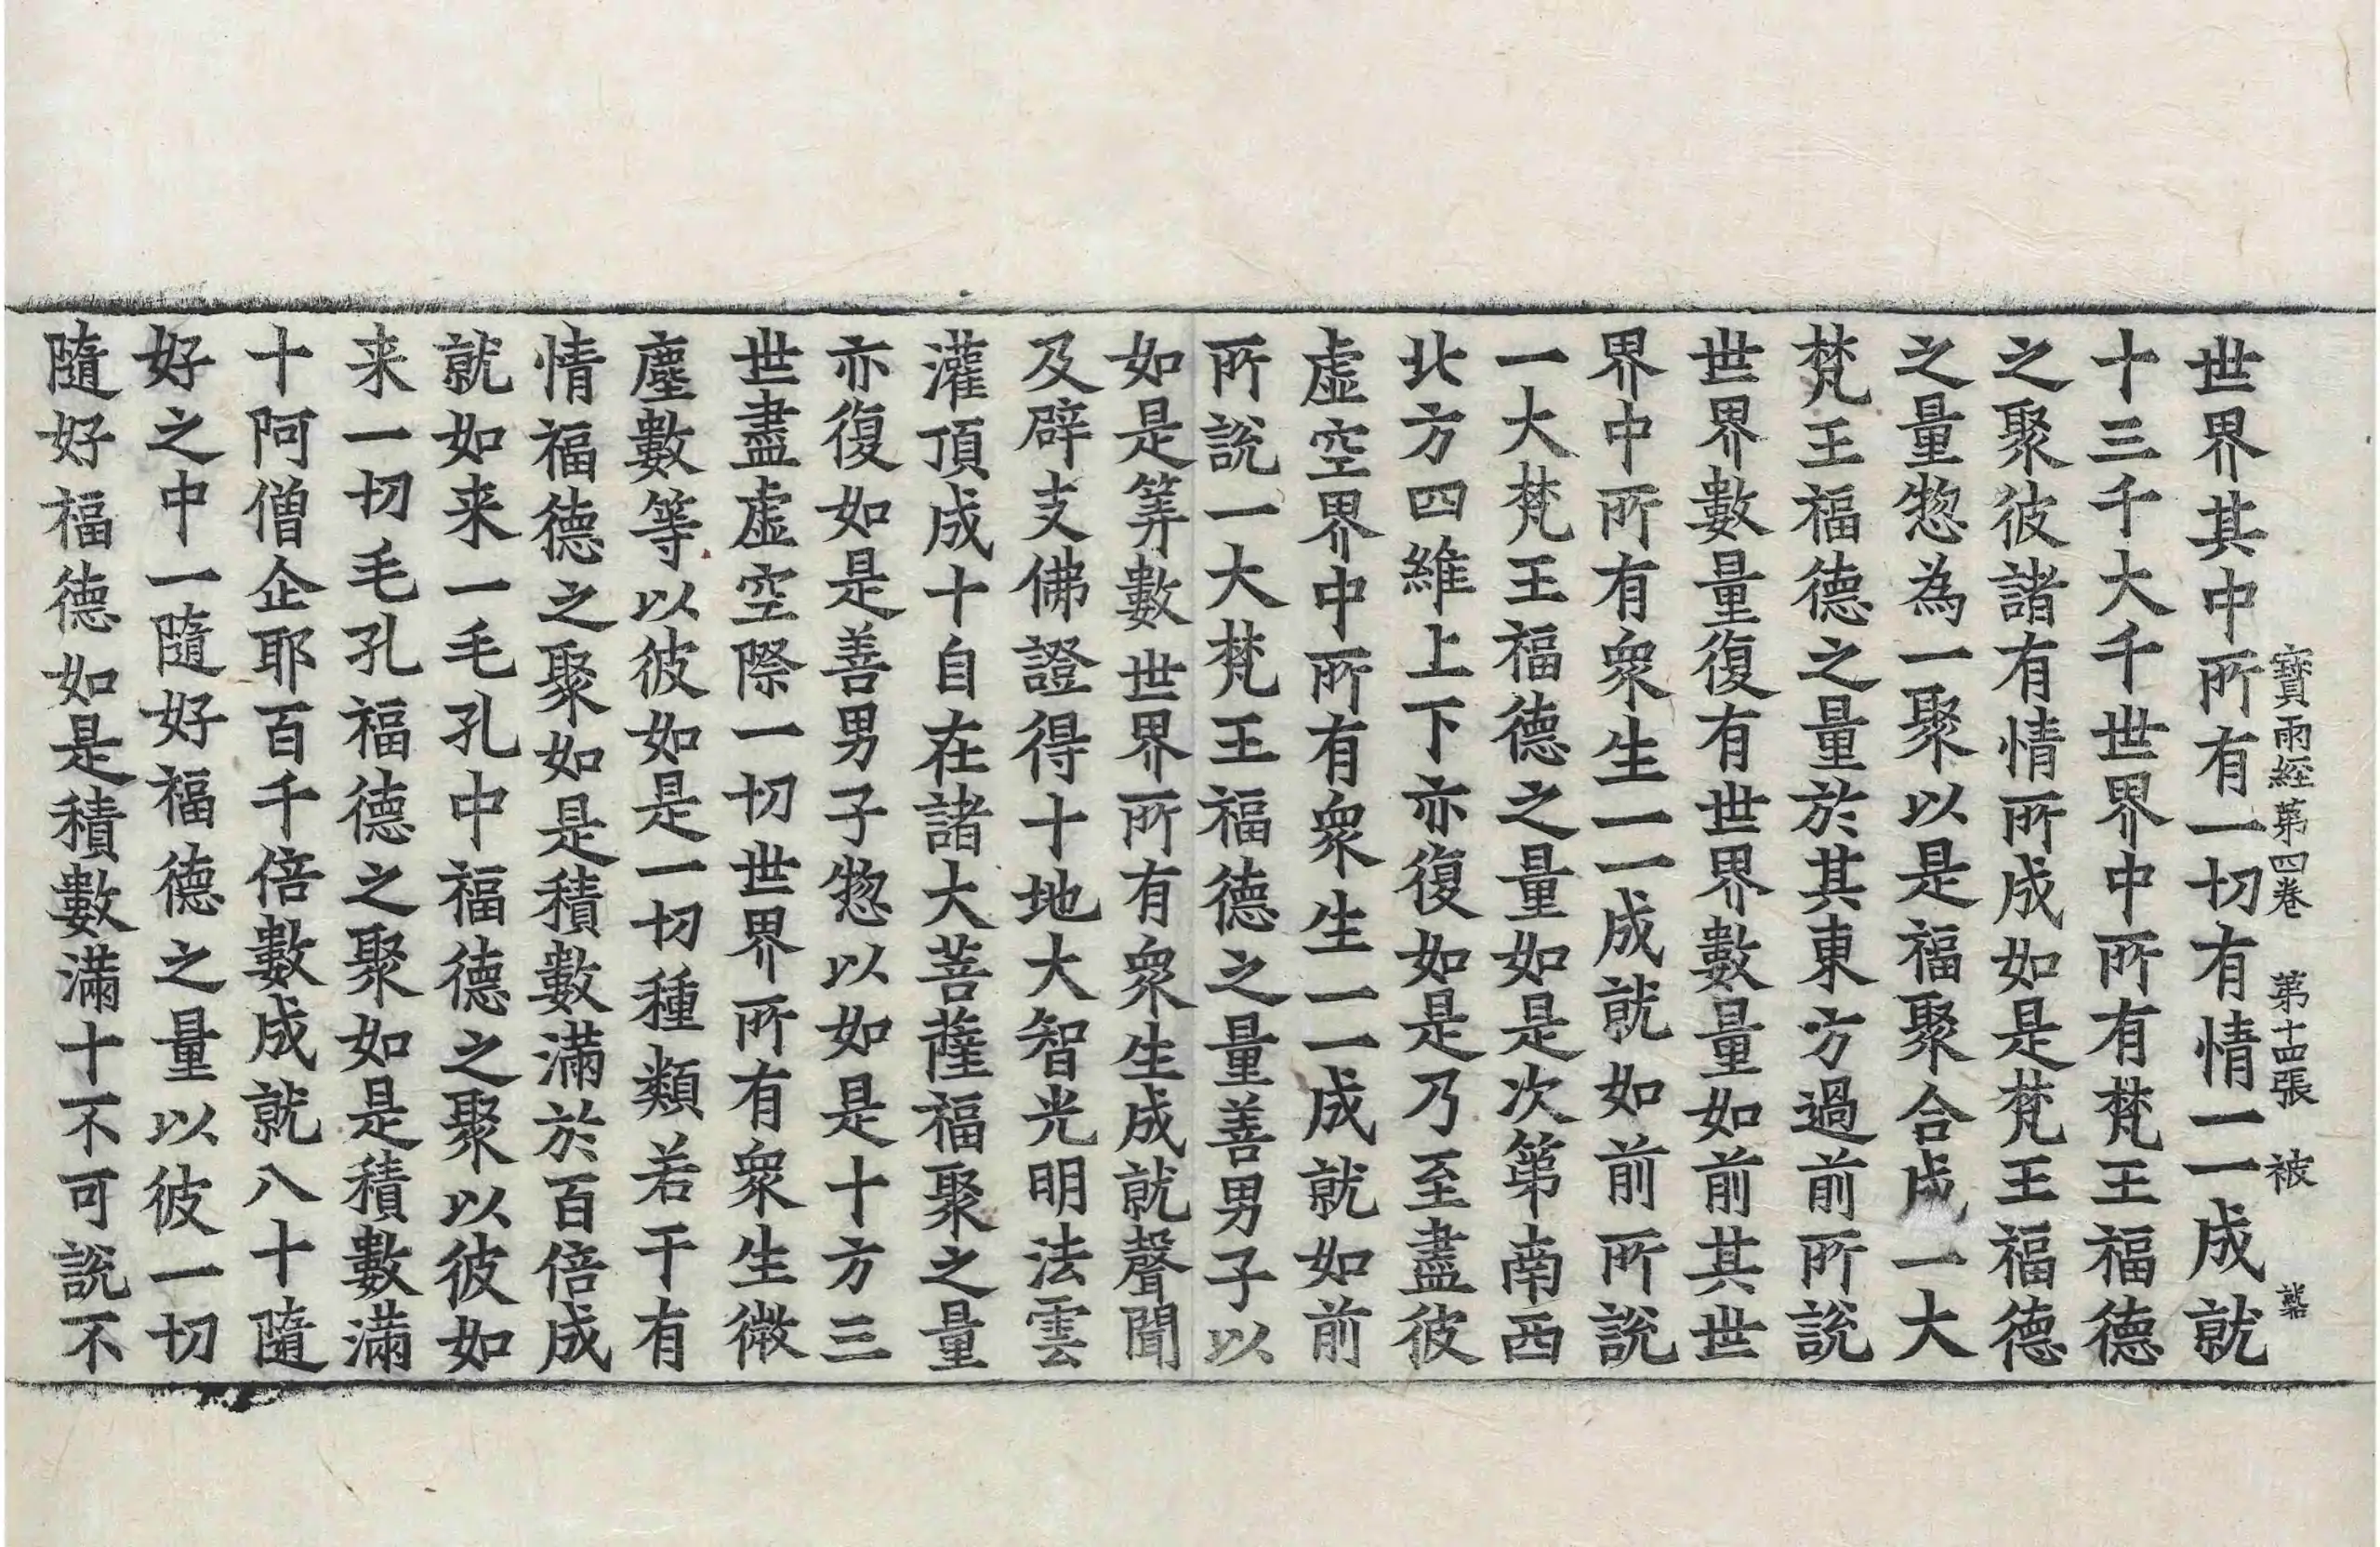 寶雨經第四卷 第十四張 被
世界其中所有一切有情一一成就
十三千大千世界中所有梵王福德
之聚彼諸有情所成如是梵王福德
之量惣為一聚以是福聚合成一大
梵王福德之量於其東方過前所說
世界數量復有世界數量如前其世
界中所有衆生一一成就如前所說
一大梵王福德之量如是次第南西
北方四維上下亦復如是乃至盡彼
虛空界中所有衆生一一成就如前
所說一大梵王福德之量善男子以
如是筭數世界所有衆生成就聲聞
及辟支佛證得十地大智光明法雲
灌頂成十自在諸大菩薩福聚之量
亦復如是善男子惣以如是十方三
世盡虛空際一切世界所有衆生微
塵數等以彼如是一切種類若干有
情福德之聚如是積數滿於百倍成
就如来一毛孔中福德之聚以彼如
来一切毛孔福德之聚如是積數滿
十阿僧企耶百千倍數成就八十隨
好之中一隨好福德之量以彼一切
隨好福德如是積數滿十不可說不